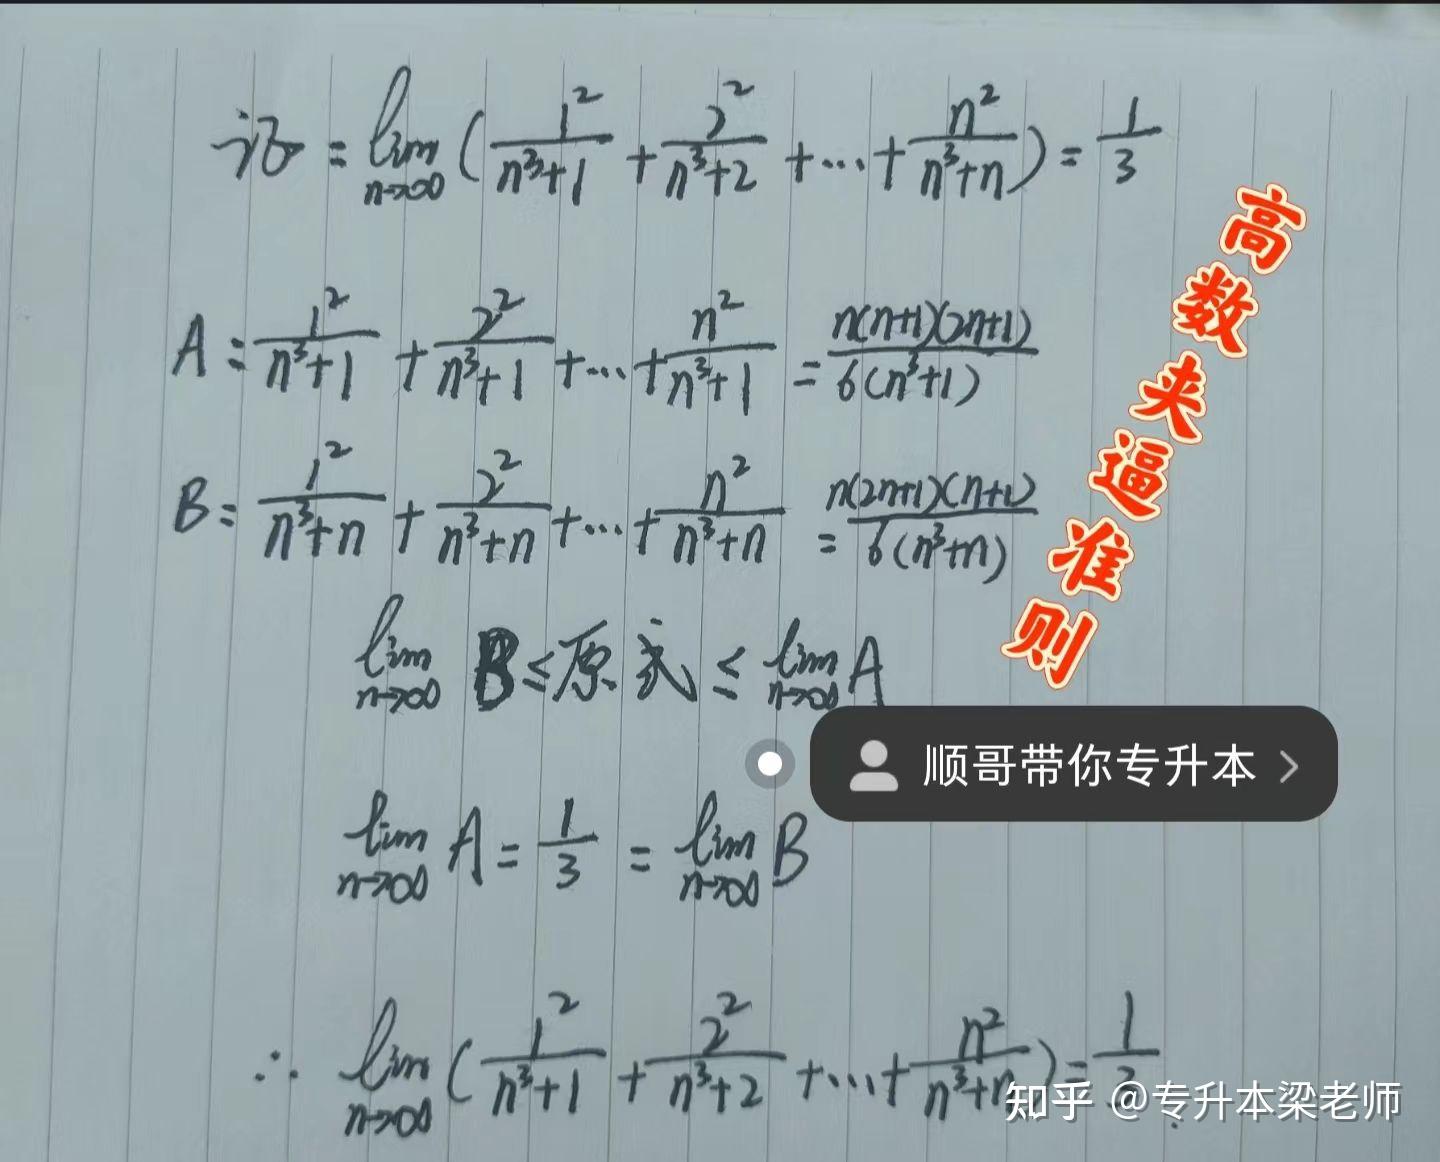 证：lim n→∞ (1²/(n³+1) + 2²/(n³+2) + ... + n²/(n³+n)) = 1/3
A = 1²/(n³+1) + 2²/(n³+1) + ... + n²/(n³+1) = n(n+1)(2n+1)/6(n³+1)
B = 1²/(n³+n) + 2²/(n³+n) + ... + n²/(n³+n) = n(2n+1)(n+1)/6(n³+n)
lim n→∞ B ≤ 原式 ≤ lim n→∞ A
高数夹逼准则
顺哥带你专升本 >
lim n→∞ A = 1/3 = lim n→∞ B
∴ lim n→∞ (1²/(n³+1) + 2²/(n³+2) + ... + n²/(n³+n)) = 1/3
知乎 @专升本梁老师